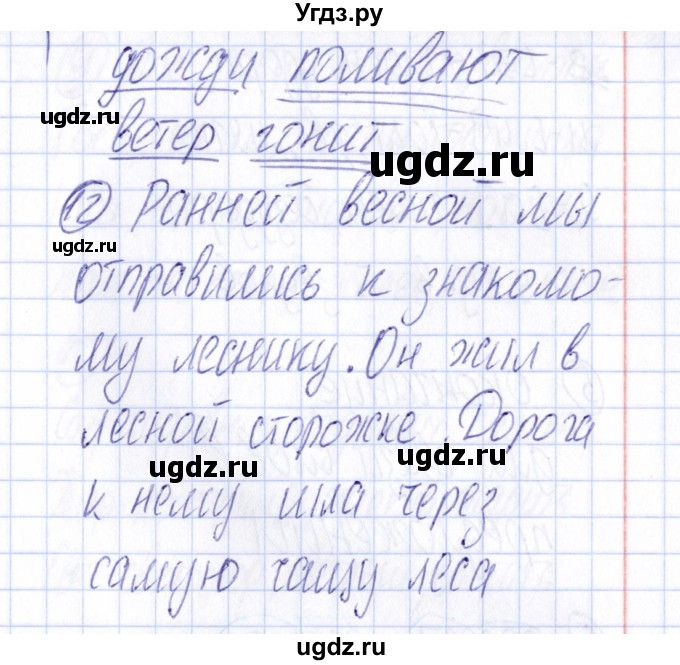 Угдз.ру
дожди поливают
ugdz.ru
ветер гонит
ugdz.ru
12 Ранней весной мы
ugdz.ru
отправились к знакомо-
му леснику. Он жил в
лесной сторожке. Дорога
ugdz.ru ugdz.ru
к нему шла через
самую чащу леса
ugdz.ru